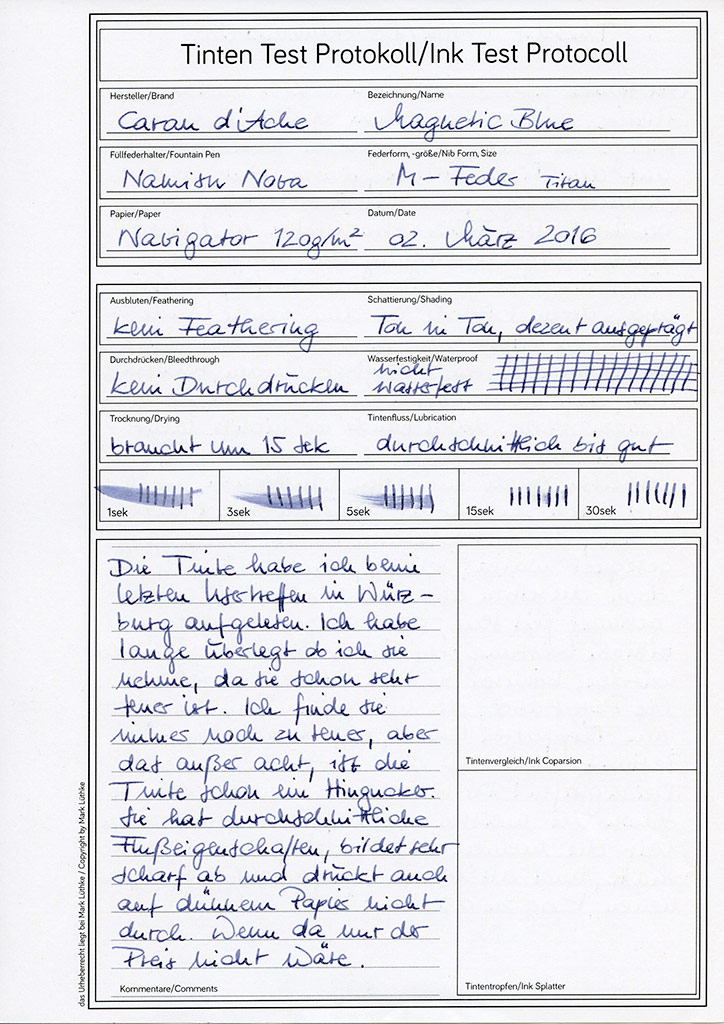 Tinten Test Protokoll/Ink Test Protocoll
Hersteller/Brand
Caran d'Ache
Bezeichnung/Name
Magnetic Blue
Füllfederhalter/Fountain Pen
Namisu Nova
Federform, -größe/Nib Form, Size
M – Feder Titan
Papier/Paper
Navigator 120g/m²
Datum/Date
02. März 2016
Ausbluten/Feathering
kein Feathering
Schattierung/Shading
Ton in Ton, dezent ausgeprägt
Durchdrücken/Bleedthrough
kein Durchdrücken
Wasserfestigkeit/Waterproof
nicht
wasserfest
Trocknung/Drying
braucht um 15 sek
Tintenfluss/Lubrication
durchschnittlich bis gut
1sek
3sek
5sek
15sek
30sek
Die Tinte habe ich beim
letzten Usertreffen in Würz-
burg aufgelesen. Ich habe
lange überlegt ob ich sie
nehme, da sie schon sehr
teuer ist. Ich finde sie
immer noch zu teuer, aber
das außer acht, ist die
Tinte schon ein Hingucker.
Sie hat durchschnittliche
Flußeigenschaften, bildet sehr
scharf ab und drückt auch
auf dünnem Papier nicht
durch. Wenn da nur der
Preis nicht wäre.
Kommentare/Comments
Tintenvergleich/Ink Coparsion
Tintentropfen/Ink Splatter
das Urheberrecht liegt bei Mark Lüthke / Copyright by Mark Lüthke